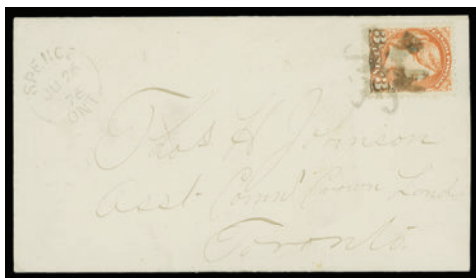 SPENCE
JU 26
76
ONT
Thos H Johnson
Asst. Comr. Crown Land
Toronto